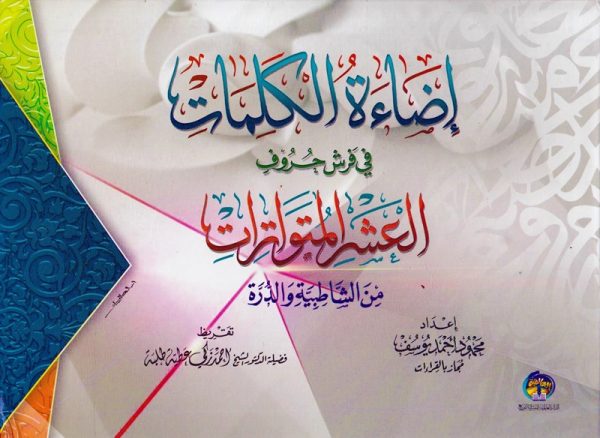 إِضَاءَةُ الكَلِمَاتِ
في فَرْشِ حُرُوفِ
العَشْرِ المُتَوَاتِرَاتِ
مِنَ الشَّاطِبِيَّةِ وَالدُّرَّةِ
إعداد
محمود أحمد يوسف
مُجاز بالقراءات
تقريظ
فضيلة الدكتور الشيخ أحمد زكي عطية طلبة